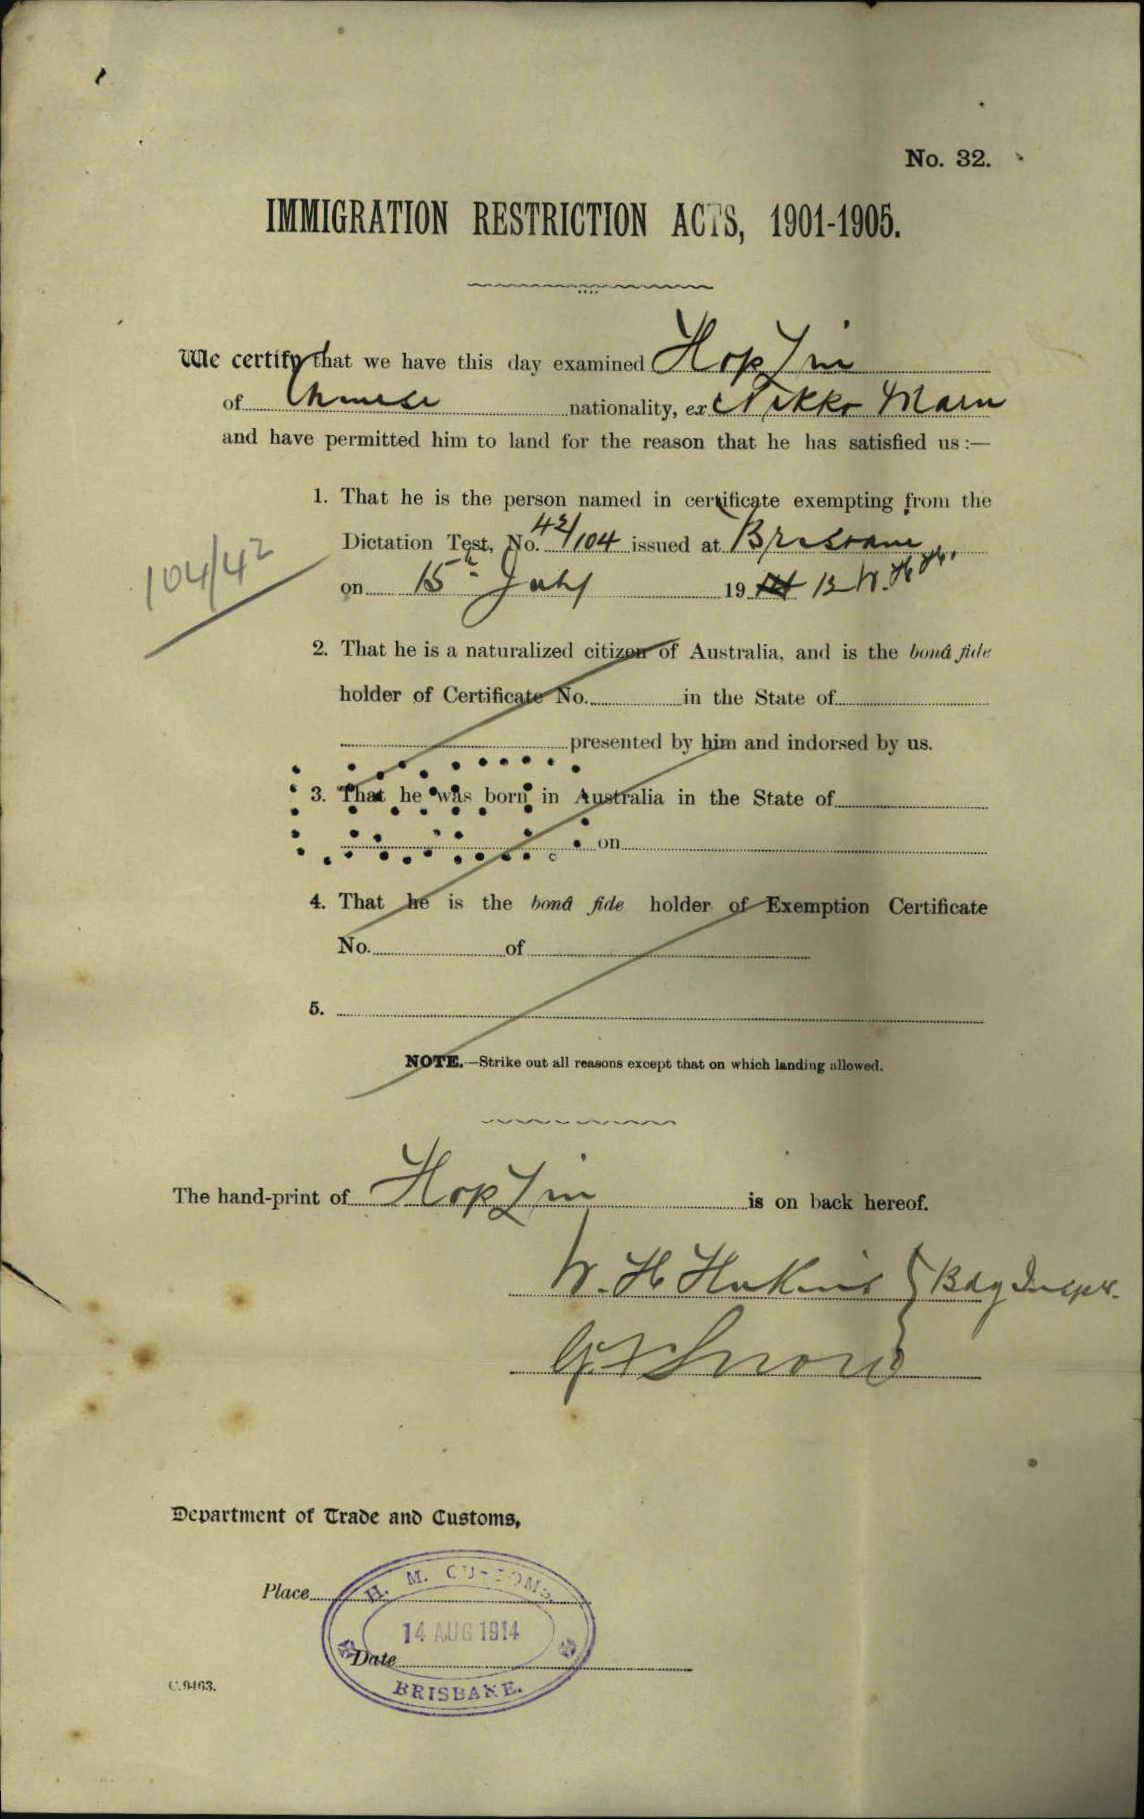 No. 32.
IMMIGRATION RESTRICTION ACTS, 1901-1905.
We certify that we have this day examined Hop Lin
of Chinese nationality, ex Nikko Maru
and have permitted him to land for the reason that he has satisfied us :—
1. That he is the person named in certificate exempting from the
Dictation Test, No. 42/104 issued at Brisbane
104/42
on 15th July 19 12 W.H.H.
2. That he is a naturalized citizen of Australia, and is the bonâ fide
holder of Certificate No. in the State of
presented by him and indorsed by us.
3. That he was born in Australia in the State of
on
4. That he is the bonâ fide holder of Exemption Certificate
No. of
5.
NOTE.—Strike out all reasons except that on which landing allowed.
The hand-print of Hop Lin is on back hereof.
W. H. Bdg Inspr.
Snow
Department of Trade and Customs,
Place
H. M. CUSTOMS.
14 AUG 1914
Date
BRISBANE.
C.9463.